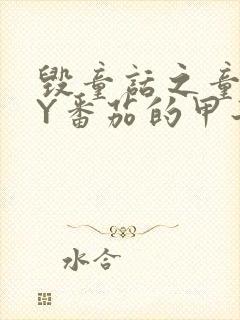 毁童话之童
Y番茄的甲
水合